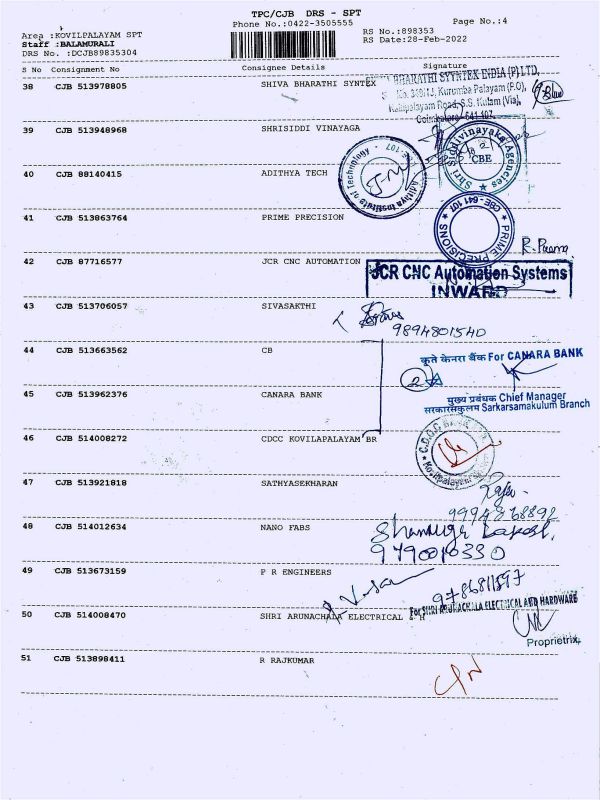 TPC/CJB DRS - SPT
Phone No.:0422-3505555
Page No.:4
Area :KOVILPALAYAM SPT
Staff :BALAMURALI
DRS No. :DCJB89835304
RS No.:898353
RS Date:28-Feb-2022
S No Consignment No Consignee Details Signature
38 CJB 513978805 SHIVA BHARATHI SYNTEX
BHARATHI SYYNTEX INDIA (P) LTD,
Kurumba Palayam (P.O),
Kalipalayam Road, S.S. Kulam (Via),
Coimbatore - 641 107.
39 CJB 513948968 SHRISIDDI VINAYAGA
Shri Siddivinayaka Agencies
CBE
40 CJB 88140415 ADITHYA TECH
Adithya Institute of Technology - CBE-107
41 CJB 513863764 PRIME PRECISION
PRIME PRECISIONS CBE-641 107
42 CJB 87716577 JCR CNC AUTOMATION
JCR CNC Automation Systems
INWARD
43 CJB 513706057 SIVASAKTHI
9894801540
44 CJB 513663562 CB
कृते केनरा बैंक For CANARA BANK
2
45 CJB 513962376 CANARA BANK
मुख्य प्रबंधक Chief Manager
सरकारसंकुलम Sarkarsamakulum Branch
46 CJB 514008272 CDCC KOVILAPALAYAM BR
47 CJB 513921818 SATHYASEKHARAN
48 CJB 514012634 NANO FABS
9790010330
49 CJB 513673159 P R ENGINEERS
9786811597
50 CJB 514008470 SHRI ARUNACHALA ELECTRICAL & H
For SHRI ARUNACHALA ELECTRICAL AND HARDWARE
Proprietrix.
51 CJB 513898411 R RAJKUMAR